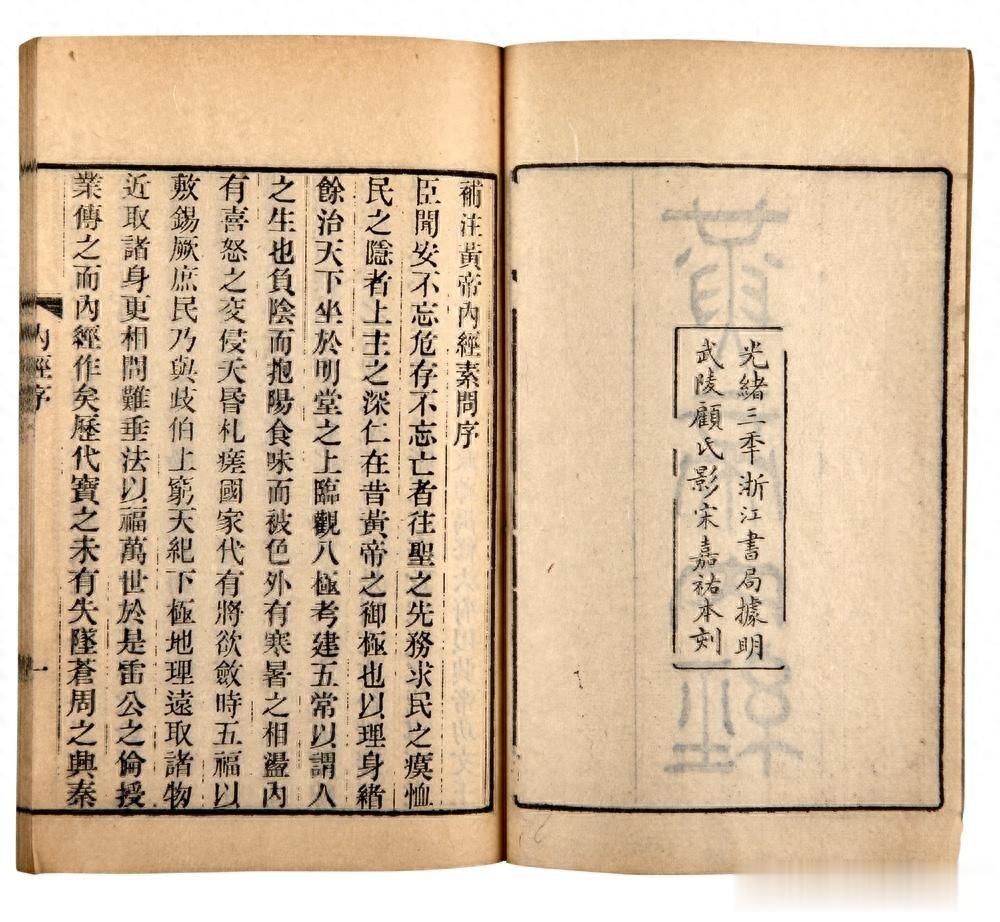 光緒三年浙江書局據明
武陵顧氏影宋嘉祐本刻
補注黃帝內經素問序
臣聞安不忘危存不忘亡者往聖之先務求民之瘼恤
民之隱者上主之深仁在昔黃帝之御極也以理身緒
餘治天下坐於明堂之上臨觀八極考建五常以謂人
之生也負陰而抱陽食味而被色外有寒暑之相盪內
有喜怒之交侵夭昬札瘥國家代有將欲斂時五福以
敷錫厥庶民乃與歧伯上窮天紀下極地理遠取諸物
近取諸身更相問難垂法以福萬世於是雷公之倫授
業傳之而內經作矣歷代寶之未有失墜蒼周之興秦
內經序
一